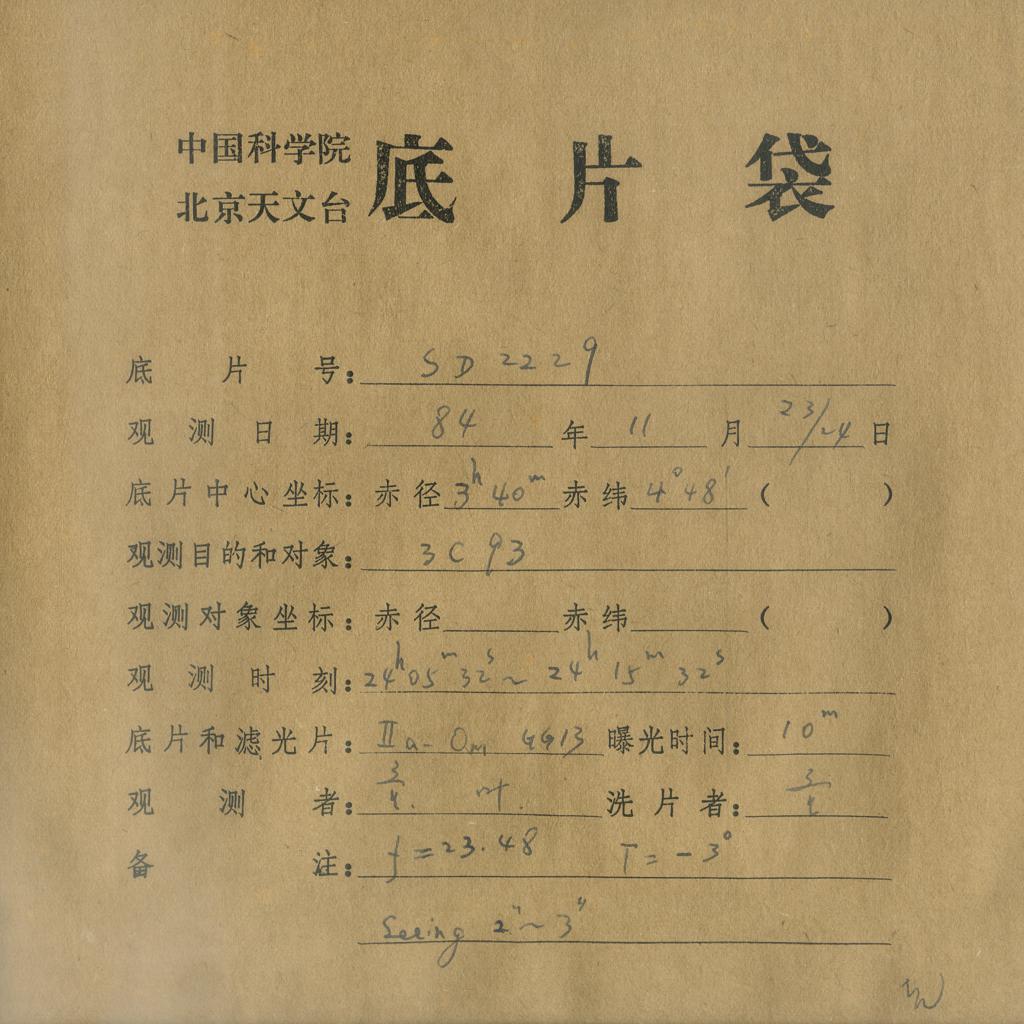 中国科学院
北京天文台 底片袋
底片号: SD 2229
观测日期: 84 年 11 月 23/24 日
底片中心坐标: 赤径 3h 40m 赤纬 4° 48′ ( )
观测目的和对象: 3C 93
观测对象坐标: 赤径 赤纬 ( )
观测时刻: 24h 05m 32s ~ 24h 15m 32s
底片和滤光片: IIa-Om GG13 曝光时间: 10m
观测者: 叶. 洗片者:
备注: f = 23.48 T = -3°
Seeing 2″~3″